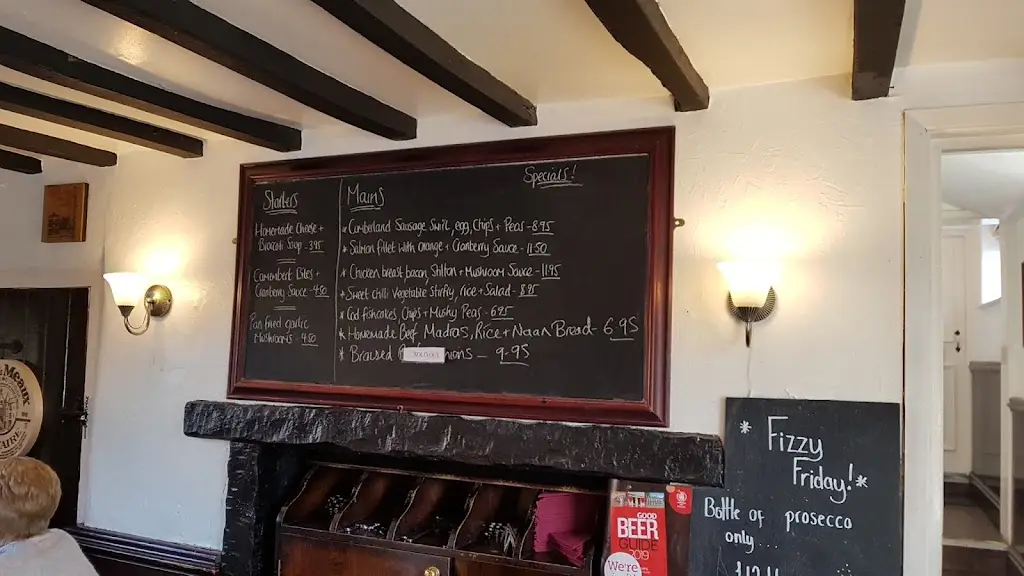 Specials!
Starters
Homemade Cheese +
Broccoli Soup - 3.95
Camembert Bites +
Cranberry Sauce - 4.50
Pan fried garlic
Mushrooms - 4.50
Mains
* Cumberland Sausage Swirl, egg, Chips + Peas - 8.95
* Salmon fillet with orange + Cranberry Sauce - 11.50
* Chicken breast, bacon, Stilton + Mushroom Sauce - 11.95
* Sweet chilli Vegetable Stirfry, rice + Salad - 8.95
* Cod Fishcakes, Chips + Mushy Peas - 6.95
* Homemade Beef Madras, Rice + Naan Bread - 6.95
* Braised onions - 9.95
SOLD OUT
* Fizzy
Friday! *
Bottle of prosecco
only...
GOOD
BEER
GUIDE
2019
We're